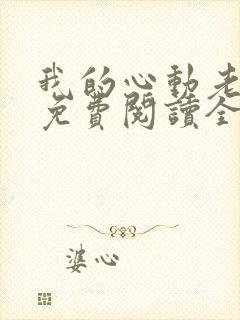 我的心動老
免費閱讀全
婆心